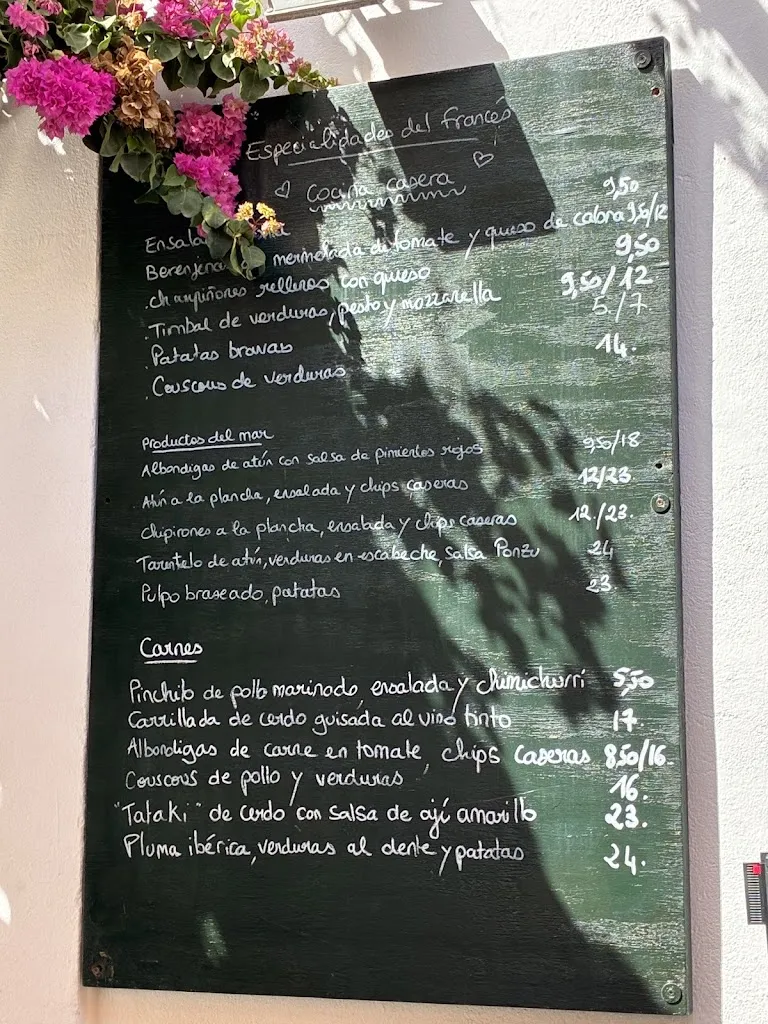 Especialidades del francés
Cocina casera
9,50
Berenjenas mermelada de tomate y queso de cabra 9,50/12
.champiñones rellenos con queso 9,50
.Timbal de verduras, pesto y mozzarella 9,50/12
.Patatas bravas 5./7
.Couscous de verduras 14.
Productos del mar
Albondigas de atún con salsa de pimientos rojos 9,50/18
Atún a la plancha, ensalada y chips caseras 12/23
Chipirones a la plancha, ensalada y chips caseras 12./23.
Tarantelo de atún, verduras en escabeche, salsa Ponzu 24
Pulpo braseado, patatas 23.
Carnes
Pinchito de pollo marinado, ensalada y chimichurri 5,50
Carrillada de cerdo guisada al vino tinto 17.
Albondigas de carne en tomate, chips caseras 8,50/16.
Couscous de pollo y verduras 16.
"Tataki" de cerdo con salsa de ají amarillo 23.
Pluma ibérica, verduras al dente y patatas 24.